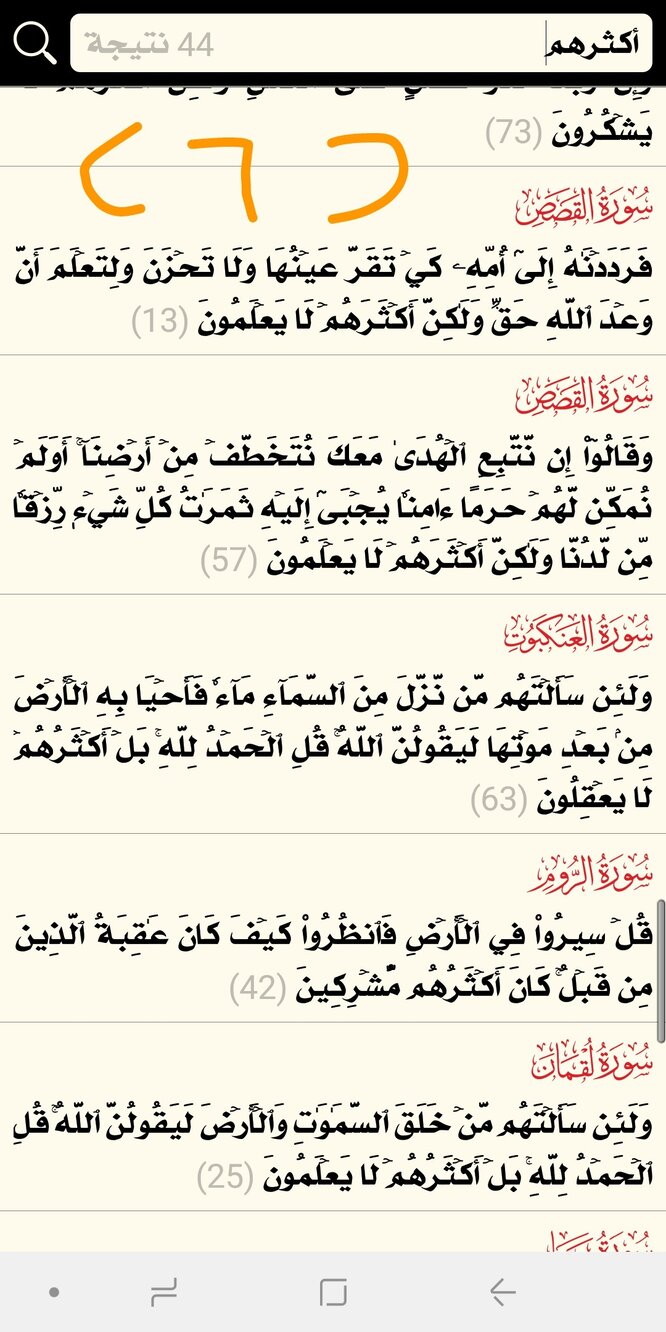 أكثرهم 44 نتيجة
يَشۡكُرُونَ (73)
سُورَةُ القَصَصِ
فَرَدَدۡنَٰهُ إِلَىٰٓ أُمِّهِۦ كَيۡ تَقَرَّ عَيۡنُهَا وَلَا تَحۡزَنَ وَلِتَعۡلَمَ أَنَّ
وَعۡدَ ٱللَّهِ حَقّٞ وَلَٰكِنَّ أَكۡثَرَهُمۡ لَا يَعۡلَمُونَ (13)
سُورَةُ القَصَصِ
وَقَالُوٓاْ إِن نَّتَّبِعِ ٱلۡهُدَىٰ مَعَكَ نُتَخَطَّفۡ مِنۡ أَرۡضِنَآۚ أَوَلَمۡ
نُمَكِّن لَّهُمۡ حَرَمًا ءَامِنٗا يُجۡبَىٰٓ إِلَيۡهِ ثَمَرَٰتُ كُلِّ شَيۡءٖ رِّزۡقٗا
مِّن لَّدُنَّا وَلَٰكِنَّ أَكۡثَرَهُمۡ لَا يَعۡلَمُونَ (57)
سُورَةُ العَنكَبُوتِ
وَلَئِن سَأَلۡتَهُم مَّن نَّزَّلَ مِنَ ٱلسَّمَآءِ مَآءٗ فَأَحۡيَا بِهِ ٱلۡأَرۡضَ
مِنۢ بَعۡدِ مَوۡتِهَا لَيَقُولُنَّ ٱللَّهُۚ قُلِ ٱلۡحَمۡدُ لِلَّهِۚ بَلۡ أَكۡثَرُهُمۡ
لَا يَعۡقِلُونَ (63)
سُورَةُ الرُّومِ
قُلۡ سِيرُواْ فِي ٱلۡأَرۡضِ فَٱنظُرُواْ كَيۡفَ كَانَ عَٰقِبَةُ ٱلَّذِينَ
مِن قَبۡلُۚ كَانَ أَكۡثَرُهُم مُّشۡرِكِينَ (42)
سُورَةُ لُقۡمَانَ
وَلَئِن سَأَلۡتَهُم مَّنۡ خَلَقَ ٱلسَّمَٰوَٰتِ وَٱلۡأَرۡضَ لَيَقُولُنَّ ٱللَّهُۚ قُلِ
ٱلۡحَمۡدُ لِلَّهِۚ بَلۡ أَكۡثَرُهُمۡ لَا يَعۡلَمُونَ (25)